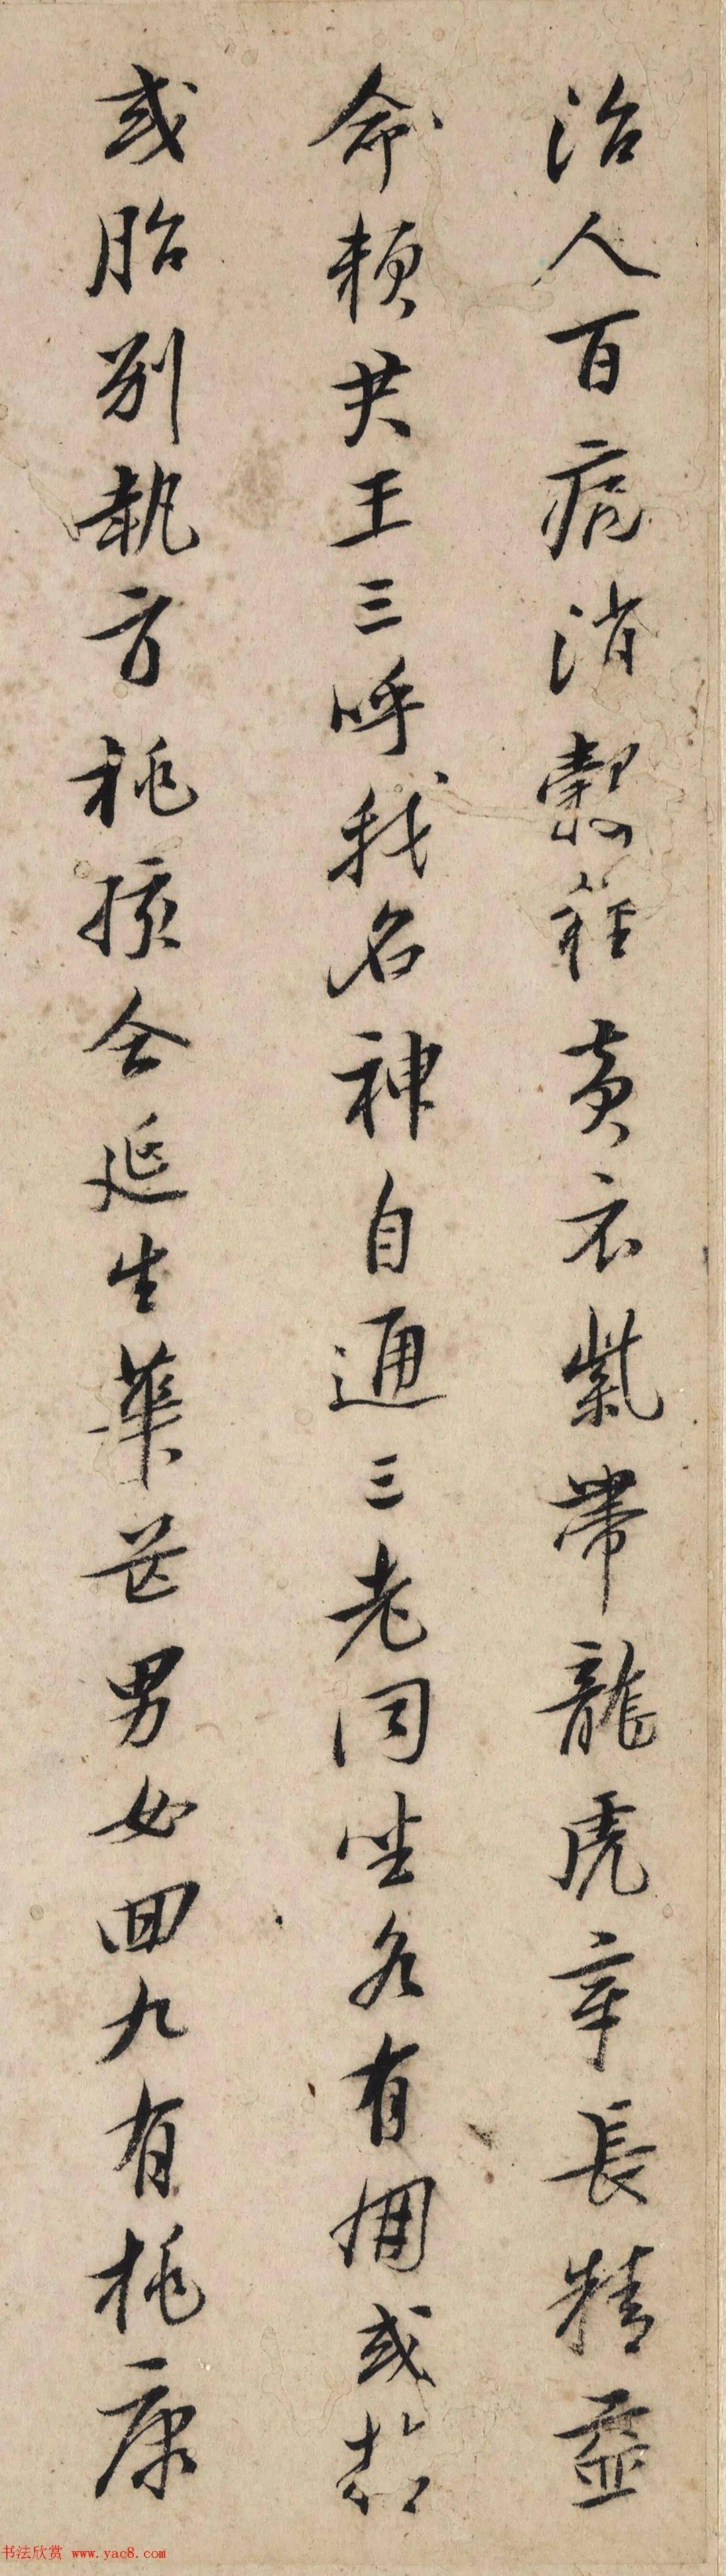 治人百病消穀粮黄衣紫帶龍虎章長精益
命頼共王三呼我名神自通三老同坐各有朋或精
或胎别執方桃孩合延生華芒男女回九有桃康
书法欣赏 www.yac8.com